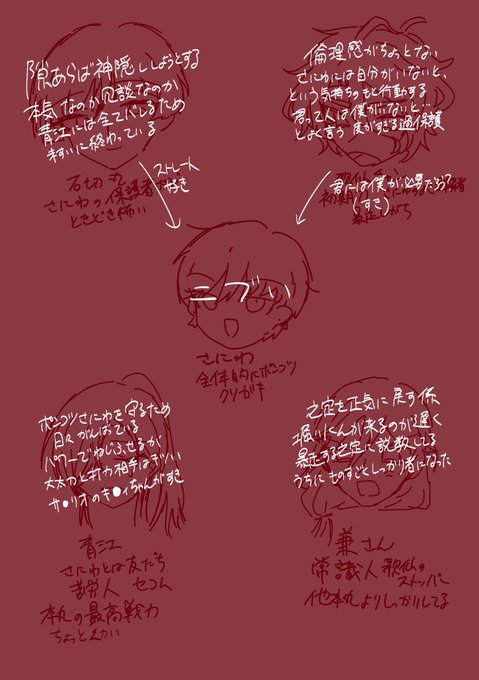 隙あらば神隠ししようとする
本気なのか冗談なのか
青江には全てバレるため
未すいに終わっている
ストレート
好き
石切丸
さにわの保護者
ときどき怖い
倫理感がちょっとない
さにわには自分がいないと、
という気持ちのもと行動する
君って人は僕がいないと…
とよく言う 度がすぎる過保護
君には僕が必要だろう?
(すき)
初期
暴走しがち
こづい
さにわ
全体的にポンコツ
クソガキ
ポンコツさにわを守るため
日々がんばっている
パワーでねじふせるが
太太刀と打刀相手はキツい
サ●リオのキ●ィちゃんがすき
青江
さにわとは友だち
苦労人 セコム
本丸の最高戦力
ちょっとえらい
之定を正気に戻す係
堀川くんが来るのが遅く
暴走する之定に説教してる
うちにものすごくしっかり者になった
兼さん
常識人 歌仙の
ストッパー
他本丸よりしっかりしてる